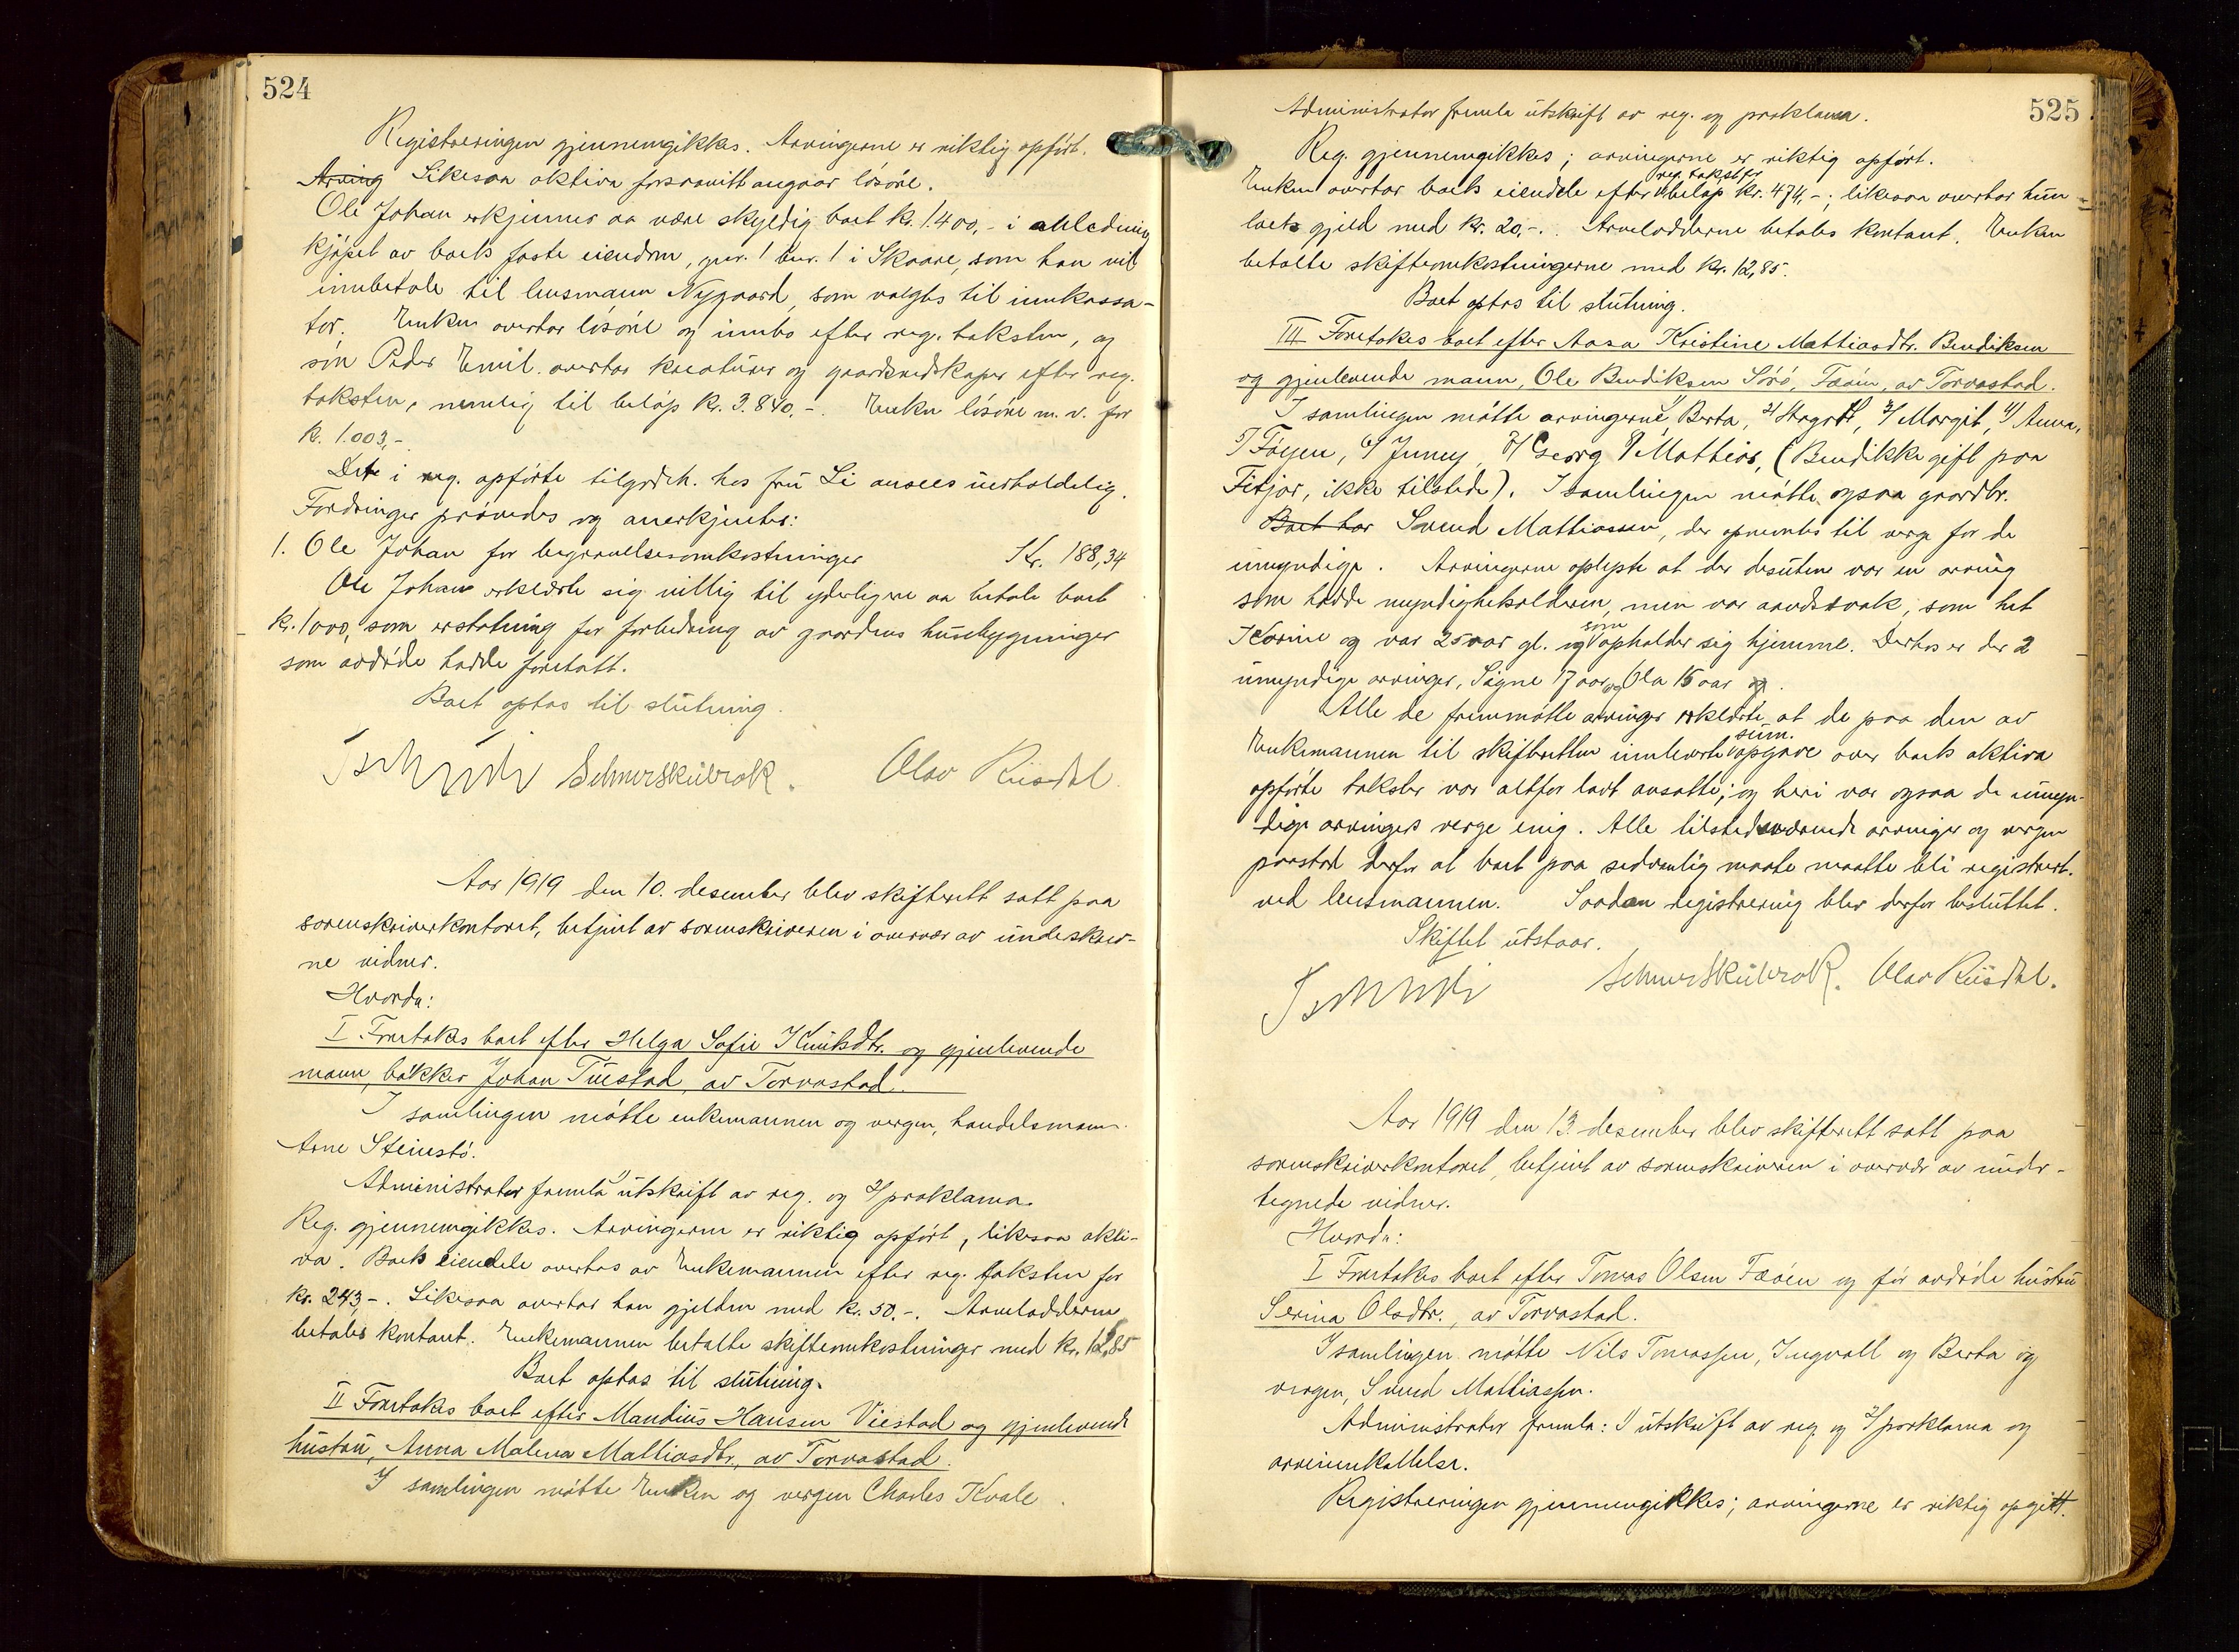 524
Registreringen gjennemgikkes. Arvingerne er riktig opført.
Arving Likesaa aktiva forsaavitt angaar løsøre.
Ole Johan erkjenner aa være skyldig boet kr. 1400,- i anledning
kjøpet av boets faste eiendom, gnr. 1 bnr. 1 i Skaare, som han vil
innbetale til lensmann Nygaard, som valgtes til innkassa-
tor. Enken overtar løsøre og innbo efter reg. taksten, og
søn Peder Emil overtar kreaturer og gaardsredskaper efter reg.
taksten, nemlig til beløp kr. 3.840,-. Enken løsøre m. v. for
kr. 1.003,-
Det i reg. opførte tilgodeh. hos fru Li ansees uerholdelig.
Fordringer prøvedes og anerkjentes:
1. Ole Johan for begravelsesomkostninger Kr. 188,34
Ole Johan erklærte sig villig til yderligere aa betale boet
kr. 1000, som erstatning for forbedring av gaardens husebygninger
som avdøde hadde foretatt.
Boet optas til slutning.
Schnerskubrok. Olav Riisdal.
Aar 1919 den 10. desember blev skifterett satt paa
sorenskriverkontoret, betjent av sorenskriveren i overvær av underskrev-
ne vidner.
Hvorda:
I Foretokes boet efter Helga Sofie Knutsdtr. og gjenlevende
mann, bakker Johan Tuestad, av Torvastad.
I samlingen møtte enkemannen og vergen, handelsmann
Arne Steinstø.
Administrator fremla 1/ utskrift av reg. og 2/ proklama.
Reg. gjennemgikkes. Arvingerne er riktig opført, likesaa akti-
va. Boets eiendele overtas av Enkemannen efter reg. taksten for
kr. 243,-. Likesaa overtar han gjelden med kr. 50,-. Arvelodderne
betales kontant. Enkemannen betalte skifteomkostninger med kr. 12,85
Boet optas til slutning.
II Foretokes boet efter Mandius Hansen Viestad og gjenlevende
hustru, Anna Malena Mattiasdtr., av Torvastad.
I samlingen møtte Enken og vergen Charles Kvale.
525
Administrator fremla utskrift av reg. og proklama.
Reg. gjennemgikkes; arvingerne er riktig opført.
reg. takst for
Enken overtar boets eiendele efter beløp kr. 474,-; likesaa overtar hun
boets gjeld med kr. 20,-. Arvelodderne betales kontant. Enken
betalte skifteomkostningerne med kr. 12,85.
Boet optas til slutning.
III Foretokes boet efter Aasa Kristine Mattiasdtr. Bendiksen
og gjenlevende mann, Ole Bendiksen Sørø, Fæøen, av Torvastad.
I samlingen møtte arvingerne 1/ Berta, 2/ 3/ Margit, 4/ Anna,
5/ 6/ Jenny, 7/ Georg 8/ Mattias, (Bendikke gift paa
Fitjar, ikke tilstede). I samlingen møtte ogsaa gaardbr.
Boet har Svend Mattiassen, der opnevntes til verge for de
umyndige. Arvingerne oplyste at der desuten var en arving
som hadde myndighetsalderen, men var aandssvak, som het
som
Karine og var 25 aar gl. og opholder sig hjemme. Derhos er der 2
umyndige arvinger, Signe 17 aar, og Ola 15 aar og.
Alle de fremmøtte arvinger erklærte at de paa den av
sum.
Enkemannen til skifteretten innleverte opgave over boets aktiva
opførte takster var altfor lavt ansatte; og heri var ogsaa de umyn-
dige arvingers verge enig. Alle tilstedeværende arvinger og vergen
paastod derfor at boet paa sedvanlig maate maatte bli registrert.
ved lensmannen. Saadan registrering blev derfor besluttet.
Skiftet utstaar.
Schnerskubrok. Olav Riisdal.
Aar 1919 den 13. desember blev skifterett satt paa
sorenskriverkontoret, betjent av sorenskriveren i overvær av under-
tegnede vidner.
Hvorda:
I Foretokes boet efter Tomas Olsen Fæøen og før avdøde hustru
Serina Olsdtr., av Torvastad.
I samlingen møtte Nils Tomassen, Ingvall og Berta og
vergen, Svend Mattiassen.
Administrator fremla: 1/ utskrift av reg. og 2/ porklama og
arveinnkallelse.
Registreringen gjennemgikkes; arvingerne er riktig opgitt.